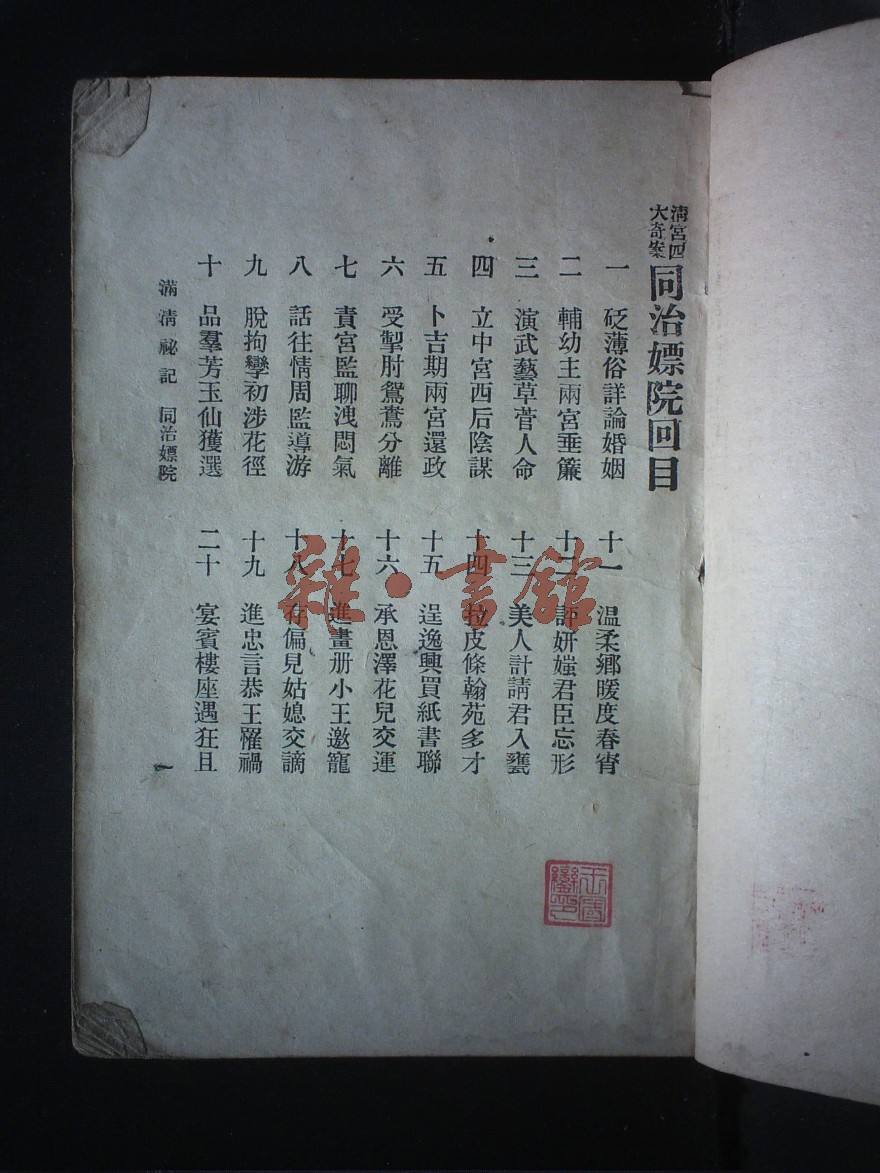 清宮四
大奇案
同治嫖院回目
一 砭薄俗詳論婚姻
二 輔幼主兩宮垂簾
三 演武藝草菅人命
四 立中宮西后陰謀
五 卜吉期兩宮還政
六 受掣肘鴛鴦分離
七 責宮監聊洩悶氣
八 話往情周監導游
九 脫拘攣初涉花徑
十 品羣芳玉仙獲選
十一 溫柔鄉暖度春宵
十二 評妍媸君臣忘形
十三 美人計請君入甕
十四 拉皮條翰苑多才
十五 逞逸興買紙書聯
十六 承恩澤花兒交運
十七 進畫册小王邀寵
十八 存偏見姑媳交謫
十九 進忠言恭王罹禍
二十 宴賓樓座遇狂且
滿淸祕記 同治嫖院
一
雜·書館